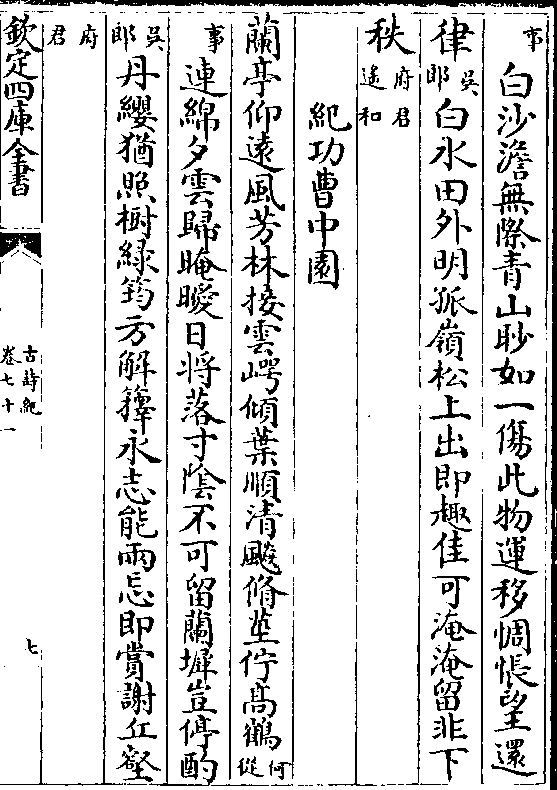 事白沙澹無際青山眇如一傷此物運移惆悵望還
律吳郎白水田外明孤嶺松上出即趣佳可淹淹留非下
秩府君遙和
紀功曹中園
蘭亭仰遠風芳林接雲崿傾葉順清飇脩莖佇高鶴何從
事連綿夕雲歸晻曖日將落寸陰不可留蘭墀豈停酌
吳郎丹纓猶照樹綠筠方解籜永志能兩忘即賞謝丘壑
府君
欽定四庫全書
古詩紀
卷七十一
七